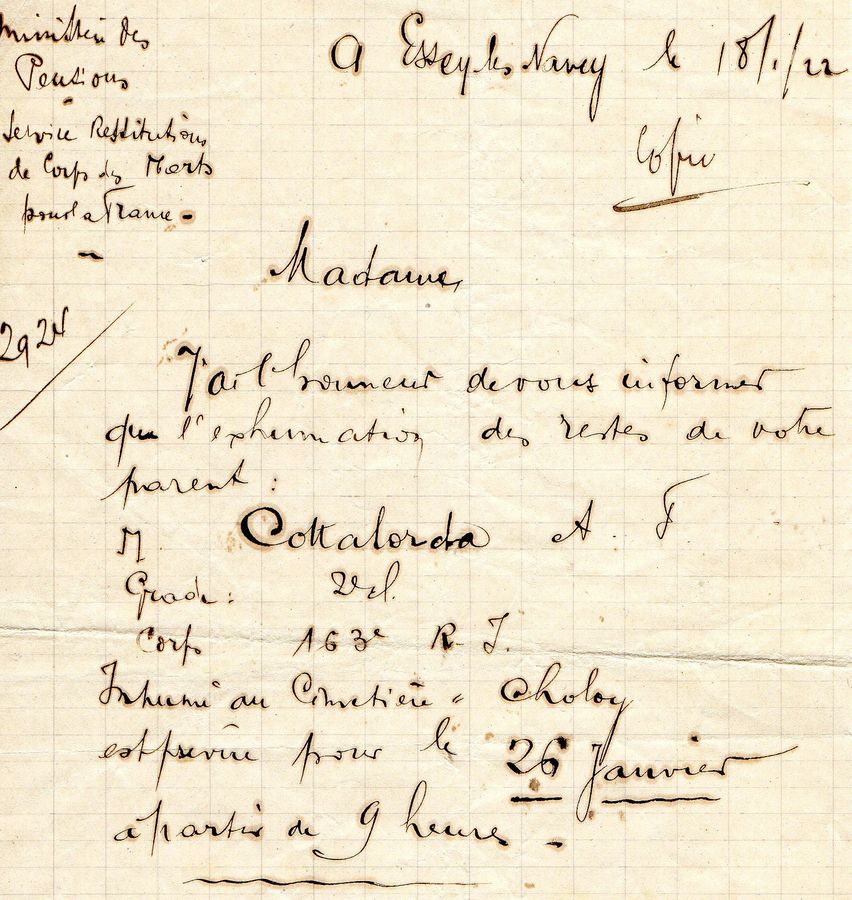 Ministère des
Pensions
Service Restitutions
de Corps des Morts
pour la France -
A Essey les Nancy le 18/1/22
Copie
Madame,
J'ai l'honneur de vous informer
que l'exhumation des restes de votre
parent :
M Cottalorda A. F.
Grade : 2e cl.
Corps 163e R. I.
Inhumé au Cimetière " Choloy
est prévue pour le 26 Janvier
à partir de 9 heures -